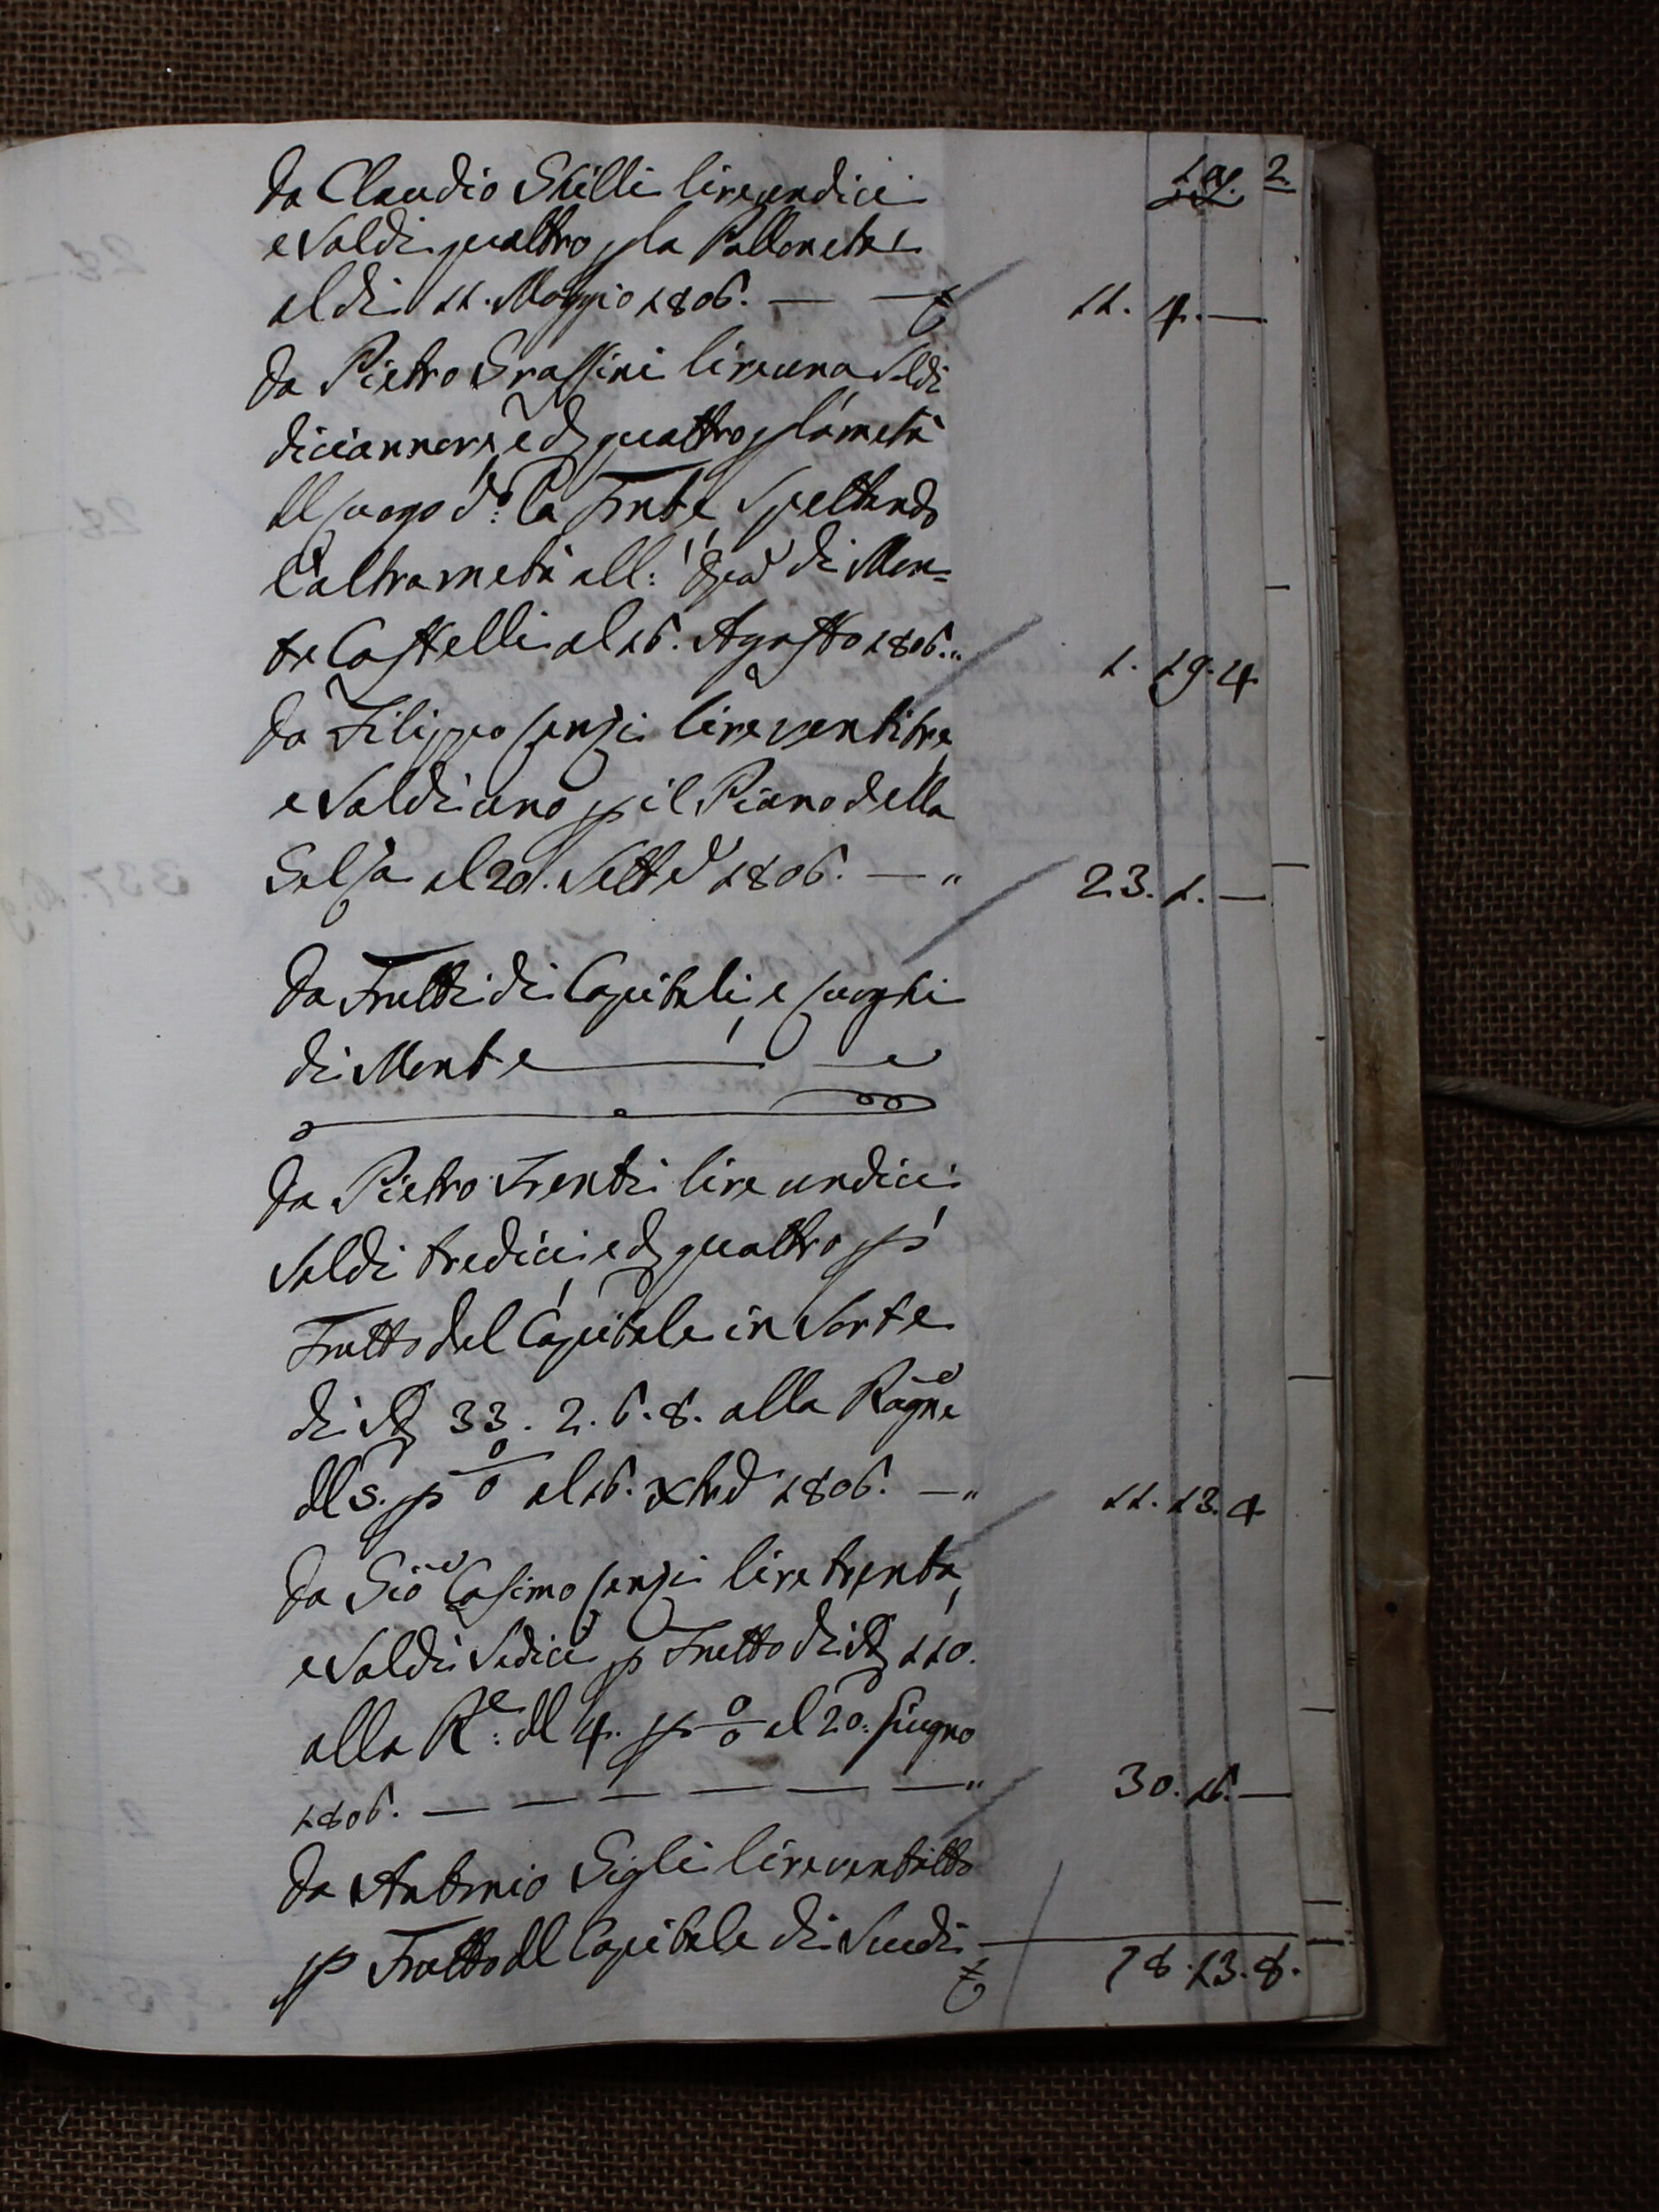 2.
da Claudio Stilli lire undici
e Soldi quattro p la Palloneta
al di 11. Maggio 1806. — — 11. 4. —
da Pietro Grassini lire una Soldi
diciannove, e d quattro p la metà
del luogo d.o la Fonte, Spettando
l'altra metà all: di Mon=
te Castelli al 16. Agosto 1806. „ 1. 19. 4
da Filippo Lenzi lire ventitre
e Soldi uno p il Piano della
al 20. Sett.e 1806. — „ 23. 1. —
da Frutti di Capitali, e Luoghi
di Monte
da Pietro Trenti lire undici
Soldi tredici, e d quattro p
Frutto del Capitale in Sorte
di 33. 2. 6. 8. alla Ragne
del 5. p o/o al 16. Xbre 1806. — „ 11. 13. 4
da Gio Cosimo Lenzi lire trenta,
e Soldi Sedici p Frutto di 110.
alla R.e: del 4. p o/o al 20. Giugno
1806. — — — — — — „ 30. 16. —
da Antonio Gigli lire ventotto
p Frutto del Capitale di Scudi
78. 13. 8.